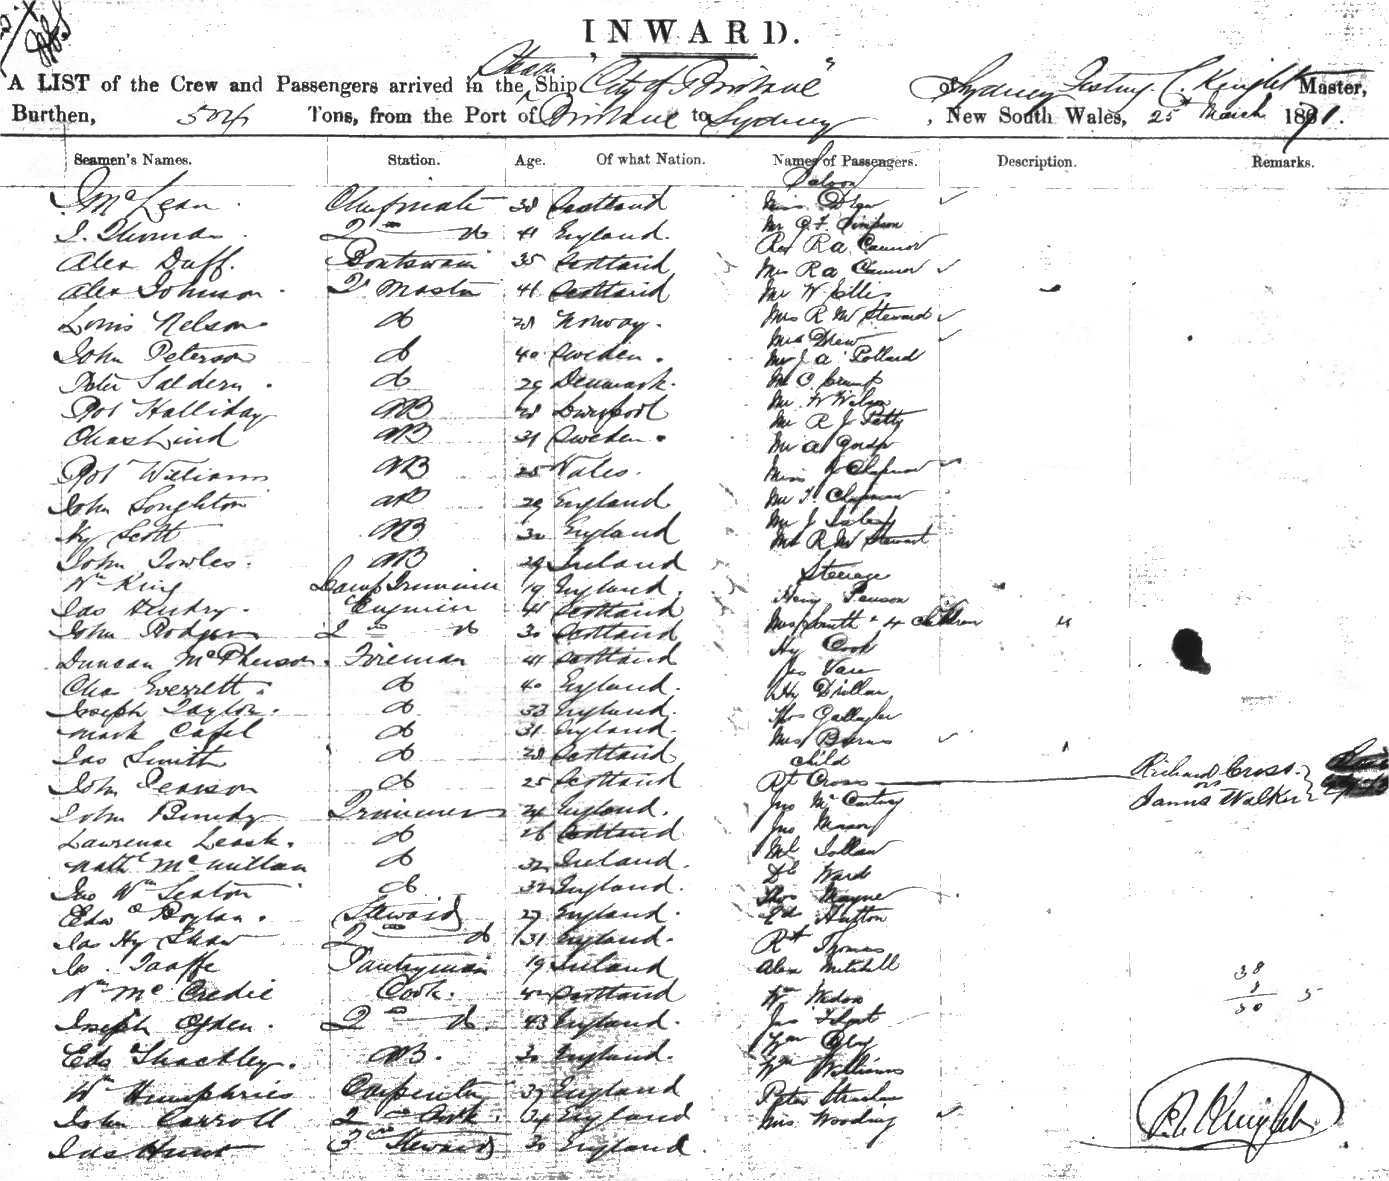 INWARD.
A LIST of the Crew and Passengers arrived in the Steam Ship "City of Brisbane" of Sydney C. Knight Master,
Burthen, 504 Tons, from the Port of Brisbane to Sydney, New South Wales, 25th March 1881.
Seamen's Names. Station. Age. Of what Nation. Names of Passengers. Description. Remarks.
Saloon
McLean Chief mate 38 Scotland Miss
J. Thomas 2nd do 41 England. Mr C. F. Simpson
Rev R A Connor
Alex Duff. Boatswain 35 Scotland Mrs R A Connor
Alex Johnson Qr Master 41 Scotland Mr W Ellis
Louis Nelson do 28 Norway. Mrs R M Steward
Mrs Drew
John Peterson do 40 Sweden. Mr J A Pollard
Peter Saldern do 29 Denmark. Mr C. Crump
Robt Halliday AB 28 Liverpool Mr W Wilson
Mr R J Petty
Chas Lind AB 31 Sweden. Mr A
Robt Williams AB 25 Wales. Miss Chapman
John Soughton AB 29 England Mr F. Chapman
Mr J
Hy Scott AB 30 England Mr R M Stewart
John Towles. AB 29 Ireland
Steerage
Wm King Lamp Trimmer 19 England.
Jas Hendry. Engineer 41 Scotland Henry Pearson
John Rodgers 2nd do 30 Scotland Mrs Smith & 4 children 4
Duncan McPherson. Fireman 41 Scotland Hy Cook
Jas
Chas Everrett. do 40 England. Wm
Joseph Taylor. do 33 England. Thos Gallagher
Mark Capel do 31 England. Mrs Burns
Jas Smith do 28 Scotland child
John Pearson do 25 Scotland Rt Cross Richard Cross
or
James Walker
John Trimmer 24 England. Jno McCartney
Lawrence Leask. do 26 Scotland Jno Mason
Matt McMillan do 32 Ireland.
Jno Wm Seaton do 32 England. Dl Ward
Thos Mayne
Edwd Boylan. Steward 27 England. Ed Hutton
Jas Hy Shaw 2nd do 31 England. Rt Thomas
Jo. Taaffe Pantryman 19 Ireland Alex Mitchell
Wm McCredie Cook. 42 Scotland Wm
38
50
5
Joseph Ogden. 2nd do. 43 England. Jas
Eds Shackley. AB. 30 England. Wm Williams
Wm Humphries Carpenter 37 England Peter Strachan
John Carroll 2nd Cook. 34 England Mrs Wooding
Jas Hunt 3rd Steward 30 England.
C. Knight